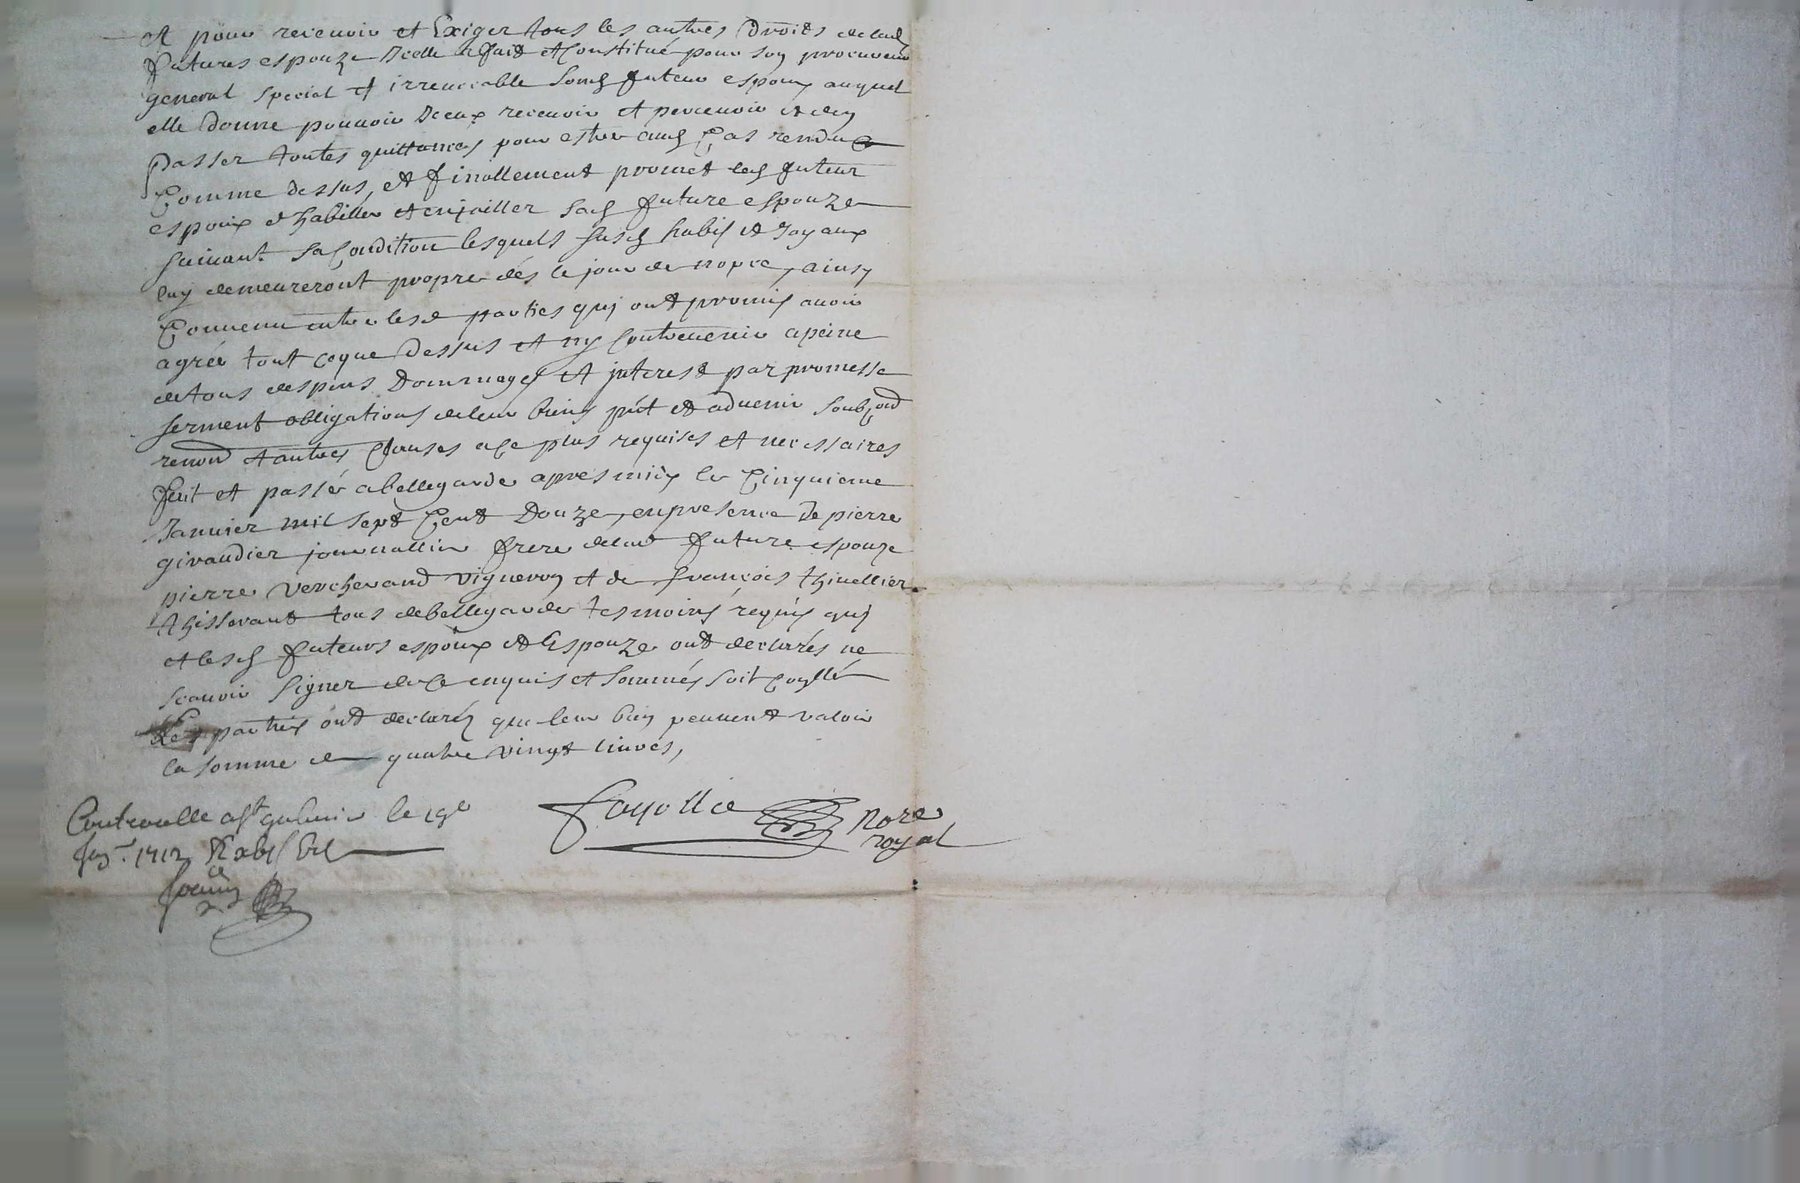 et pour recevoir et Exiger tous les autres Droits de lad
future espouze Icelle a fait et Constitué pour son procureur
general special et irrevocable sond futeur espoux auquel
elle donne pouvoir Diceux recevoir et percevoir et den
passer toutes quittances pour estre aud Cas rendu
Comme dessus, et finallement promet led futeur
espoux d habiller et enjoailler sad future espouze
suivant sa Condition lesquels susd habis et Joyaux
luy demeureront propre dés le jour de nopce, ainsy
Convenu entre lesd parties quy ont promis avoir
agréé tout ceque Dessus et ny Contrevenir apeine
de tous despens Dommages et interest par promesse
serment obligations de leur biens pnt et advenir soub
renond et autres Clauses a Ce plus requises et necessaires
fait et passé a bellegarde apres midy le Cinquieme
Janvier mil sept Cent Douze, en presence De pierre
giraudier journallier frere de lad future espouze
pierre vercherand vigneron et de françois thivellier
thisserant tous de bellegarde tesmoins requis quj
et lesd futeurs espoux et Espouze ont declarés ne
scavoir signer de Ce enquis et sommés soit Conllé
Les parties ont declarés que leur bien peuvent valoir
la somme de quatre vingt livres,
Fayolle Nore
royal
Controllé a St galmier le 19e
Jer. 1712